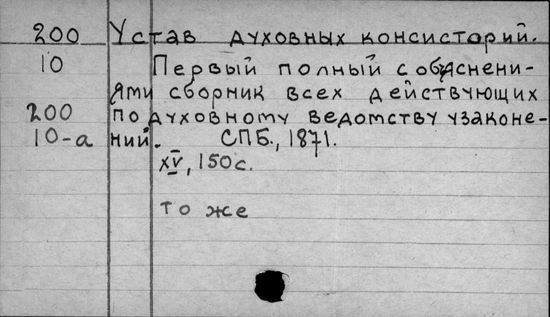 200 Устав духовных консисторий.
10 Первый полный с объяснени-
ями сборник всех действующих
200 по духовному ведомству узаконе-
10-а ний. СПБ., 1871.
XV, 150 с.
то же